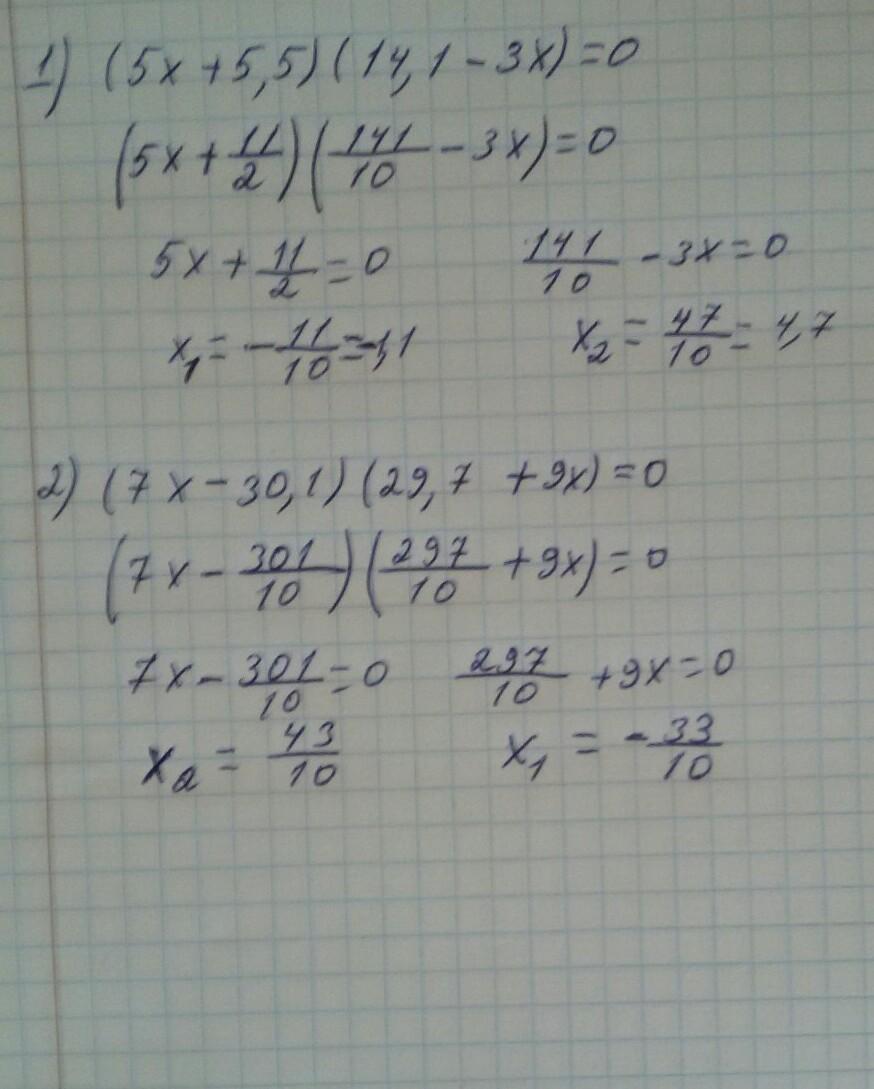 1) (5x + 5,5)(14,1 - 3x) = 0
(5x + 11/2)(141/10 - 3x) = 0
5x + 11/2 = 0    141/10 - 3x = 0
x₁ = -11/10 = -1,1    x₂ = 47/10 = 4,7
2) (7x - 30,1)(29,7 + 9x) = 0
(7x - 301/10)(297/10 + 9x) = 0
7x - 301/10 = 0    297/10 + 9x = 0
x₂ = 43/10    x₁ = -33/10